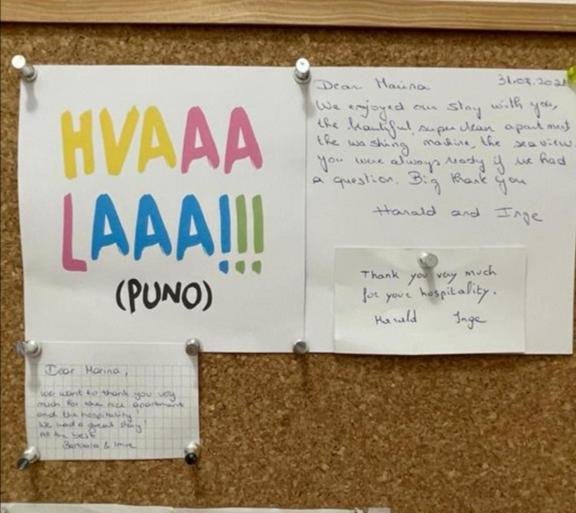 HVAAA
LAAA!!!!
(PUNO)
Dear Marina 31.08.202
We enjoyed our stay with you,
the beautiful, super clean apartment
the washing machine, the sea view.
you were always ready if we had
a question. Big thank you
Harald and Inge
Thank you very much
for your hospitality.
Harald Inge
Dear Marina,
We want to thank you very
much for the nice apartment
and the hospitality!
We had a great stay!
All the best
Barbara &